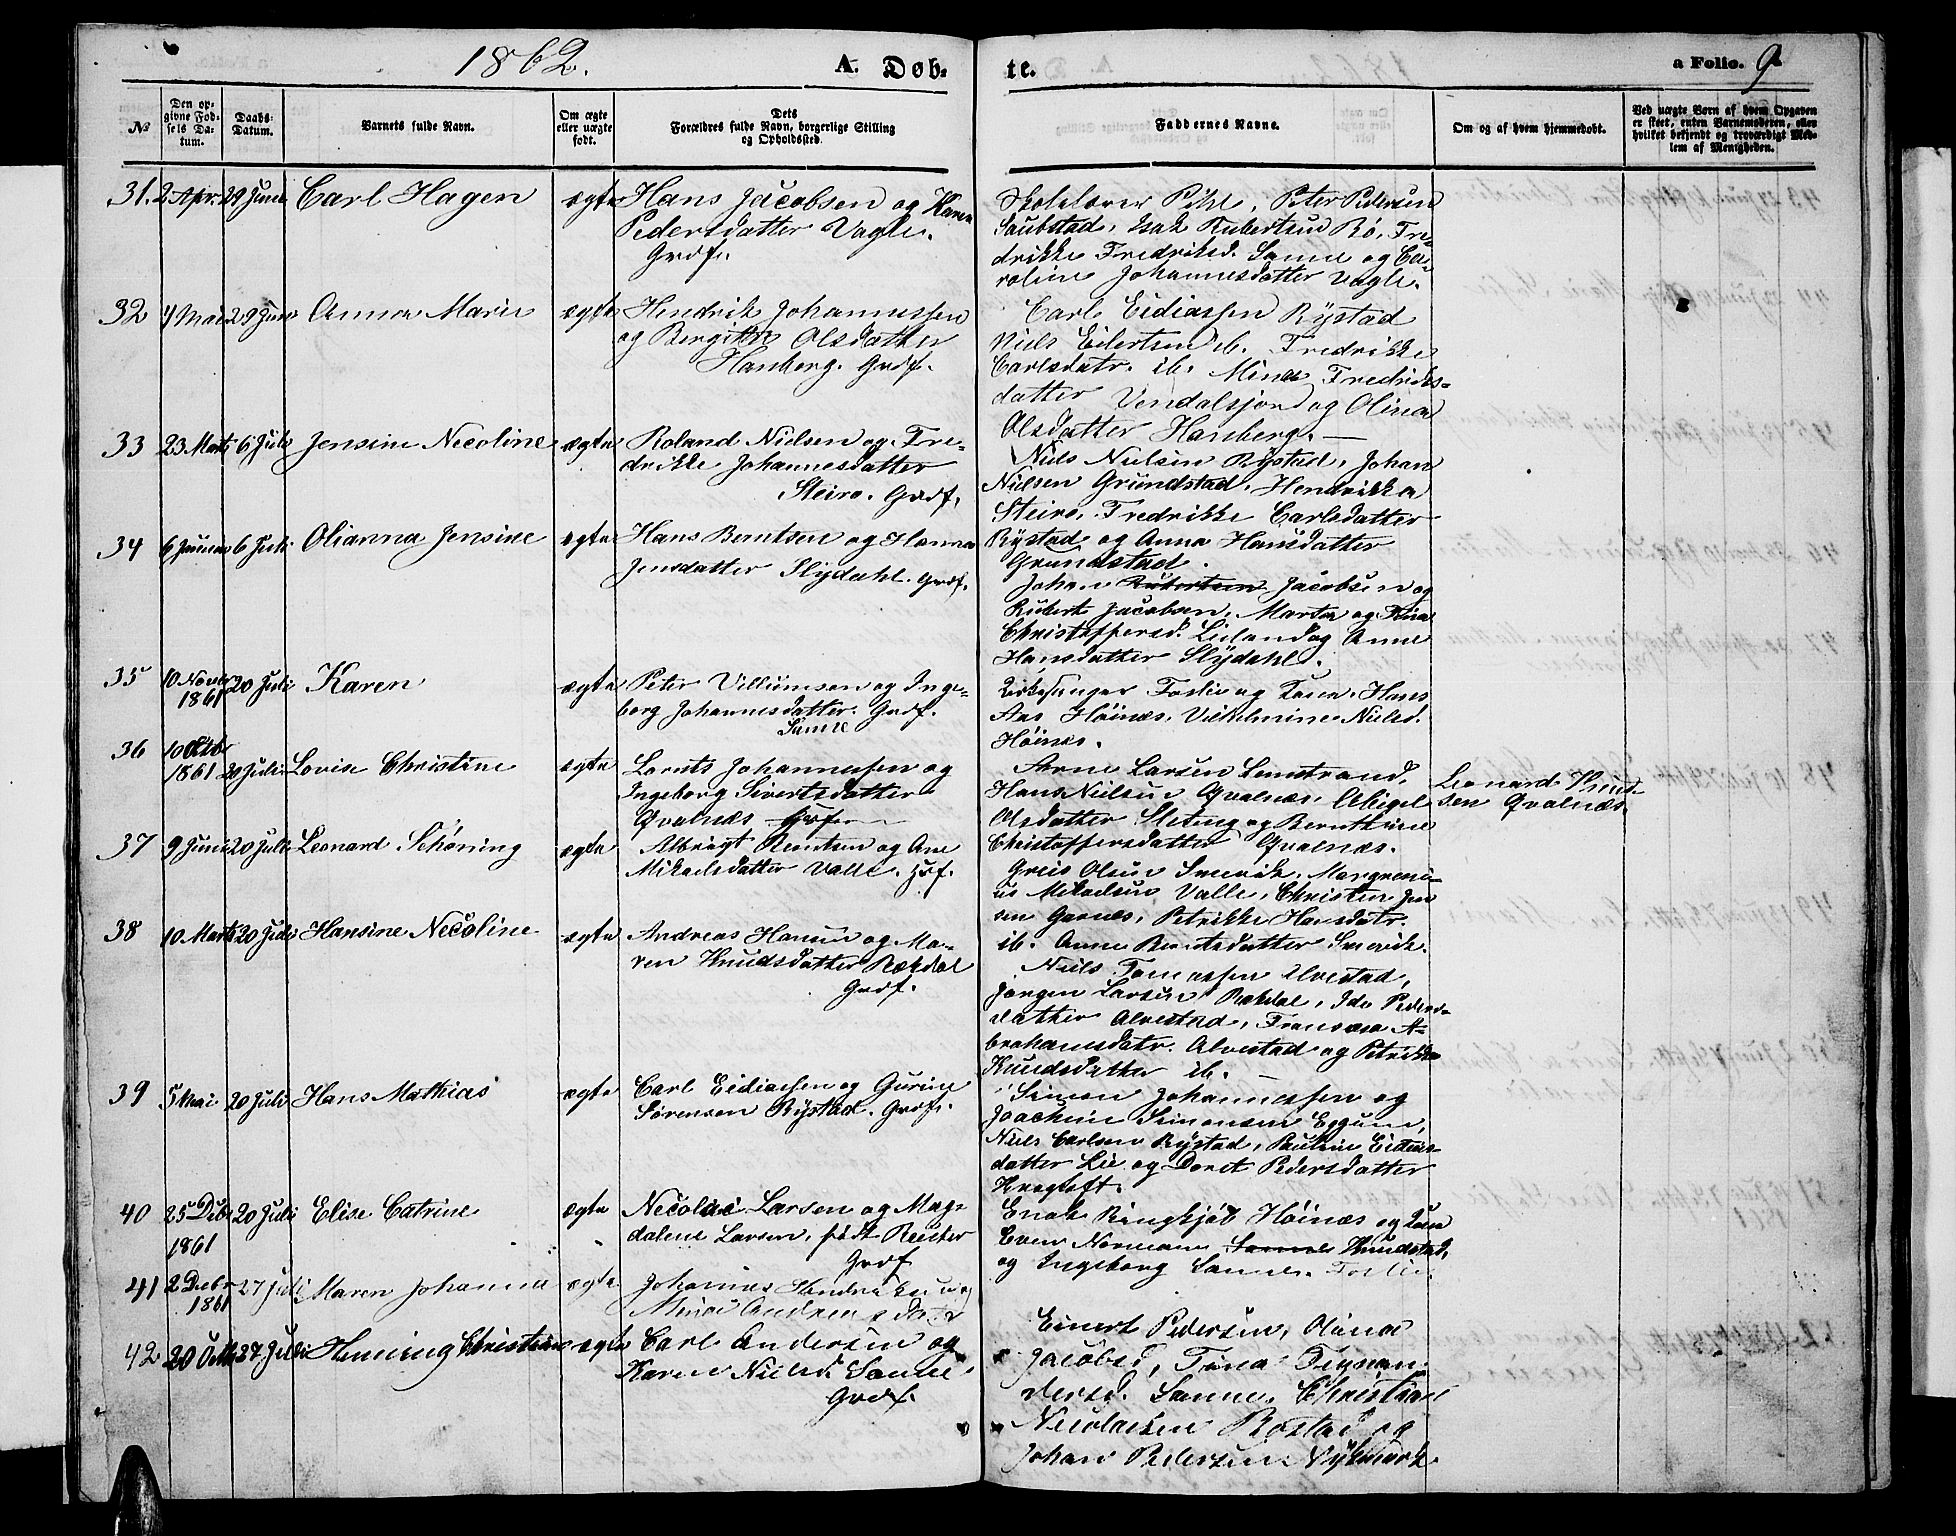 1862. A. Døb- te. a Folio. 9
No
Den op-
givne Fød-
sels Da-
tum.
Daabs-
Datum.
Barnets fulde Navn.
Om ægte
eller uægte
født.
Dets
Forældres fulde Navn, borgerlige Stilling
og Opholdssted.
Faddernes Navne.
Om og af hvem hjemmedøbt.
Ved uægte Børn af hvem Opgaven
er skeet, enten Barnemoderen, eller
hvilket bekjendt og troværdigt Med-
lem af Menigheden.
31. 2 Apr. 29 Juni Carl Hagen ægte Hans Jacobsen og Karen
Pedersdatter Vagle.
Grdf.
Skolelærer Pihl, Peter Pedersen
Saubstad, Isak Rubertsen Bö, Fre-
drikke Fredriksd. Sanne og Ca-
roline Johannesdatter Vagle.
32 4 Mai 29 Juni Anna Marie ægte Hendrik Johannessen
og Bergitte Olsdatter
Hanberg. Grdf.
Carl Eidiassen Rÿstad
Niels Eilertsen ib. Fredrikke
Carlsdatr. ib. Mina Fredriks-
datter Vendalsjord og Olina
Olsdatter Hanberg. —
33 23 Marts 6 Juli Jensine Necoline ægte Roland Nielsen og Fre-
drikke Johannesdatter
Steiro. Grdf.
Niels Nielsen Rÿstad, Johan
Nielsen Grundstad, Hendrikka
Steiro, Fredrikke Carlsdatter
Rÿstad og Anna Hansdatter
Grundstad.
34 6 Januar 6 Juli Olianna Jensine ægte Hans Berntsen og Hanna
Jensdatter Slÿdahl. Grdf.
Johan Rubertsen Jacobsen og
Rubert Jacobsen, Marta og
Christoffersd. Lieland og Anne
Hansdatter Slÿdahl.
35 10 Novbr 1861 20 Juli Karen ægte Peter Villumsen og Inge-
borg Johannesdatter. Grdf.
Sanne
Kirkesanger Foslie og Kone, Hans
Aas Höines, Vilhelmine Nielsd.
Höines.
36 10 Octbr 1861 20 Juli Lovise Christine ægte Lornts Johannessen og
Ingeborg Sivertsdatter
Qvalnæs Grdf
Arne Larsen Lenstrand,
Hans Nielsen Qvalnæs, Abigel
Olsdatter Sleting og Bernthine
Christoffersdatter Qvalnæs.
Leonard Knut-
sen Qvalnæs.
37 9 Juni 20 Juli Leonard Schöning ægte Albrigt Rentsen og Ane
Mikaelsdatter Valle. Hsf.
Greis Olsen Smervik, Mangreni-
us Mikaelsen Valle, Christen Jen
sen Garnes, Petrikke Hansdatr.
ib. Anne Berntsdatter Smervik.
38 10 Marts 20 Juli Hansine Necoline ægte Andreas Hansen og Ma-
ren Knudsdatter Rækdal
Grdf.
Niels Tomassen Alvestad,
Jørgen Larsen Rækdal, Ida Peders-
datter Alvestad, Fransesca A-
brahamsdatr. Alvestad og Petrikke
Knudsdatter ib. —
39 5 Mai 20 Juli Hans Mathias ægte Carl Eidiassen og Gurine
Sørensen Rÿstad. Grdf.
Simon Johannessen og
Joachim Simonsen Eggum,
Niels Carlsen Rÿstad, Pauline Eidias-
datter Lie og Doret Pedersdatter
Kragtoft.
40 25 Dcbr 1861 20 Juli Elise Catrine ægte Necolai Larsen og Mag-
dalene Larsen, født Reuter
Grdf
Enok Ringkjöb Höinæs og Kone
Even Normann Sanne Knudstad,
og Ingeborg Sanne. Foslie.
41 2 Decbr 1861 27 Juli Maren Johanna ægte Johannes Hendriksen og
Mina Andreasdatter
42 20 Octb 27 Juli Henning Christian ægte Carl Andersen og
Karen Nielsd. Sanne.
Grdf.
Einert Pedersen, Olina
Jacobsd, Trina Tennan-
dersd. Sanne, Christian
Nicolaisen Rostad og
Johan Pedersen Nÿkmark.